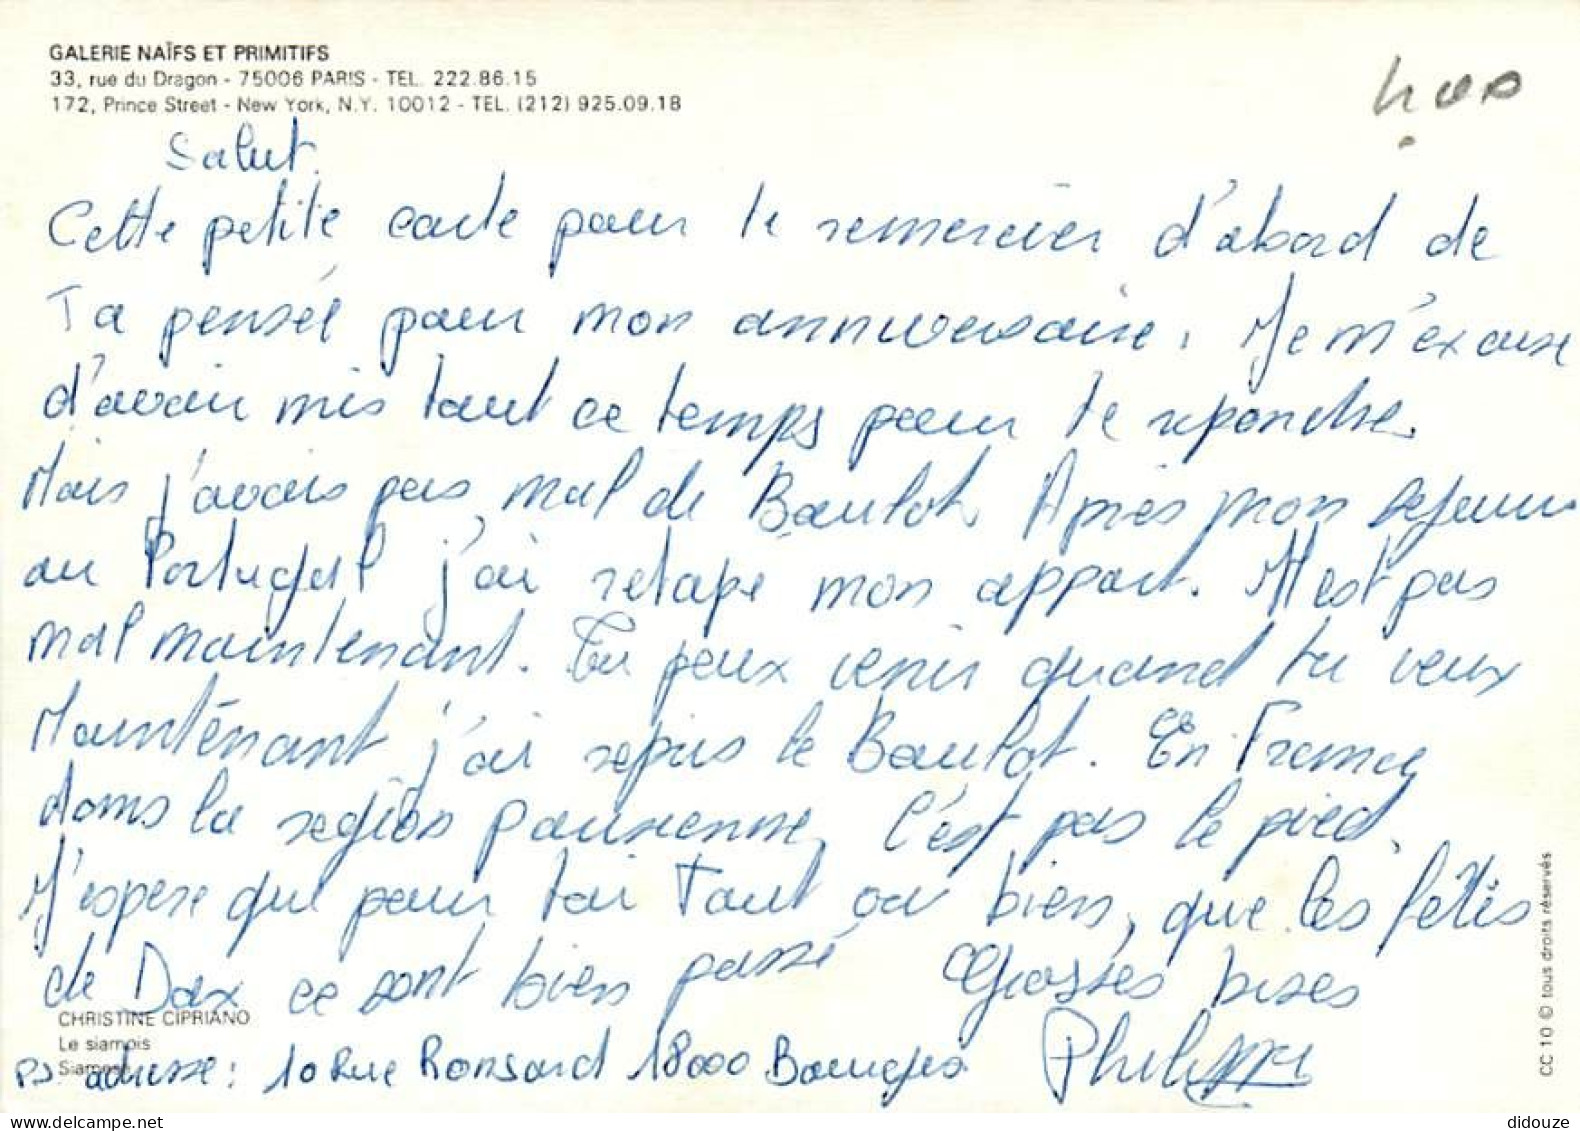 GALERIE NAÏFS ET PRIMITIFS
33, rue du Dragon - 75006 PARIS - TEL. 222.86.15
172, Prince Street - New York, N.Y. 10012 - TEL. (212) 925.09.18
Salut.
Cette petite carte pour te remercier d'abord de
Ta pensée pour mon anniversaire. Je m'excuse
d'avoir mis tant ce temps pour te repondre.
Mais j'avais pas mal de Boulot. Après mon sejour
au Portugal j'ai retapé mon appart. Il est pas
mal maintenant. Tu peux venir quand tu veux
Maintenant j'ai repris le Boulot. En France
dans la region parisienne, c'est pas le pied.
J'espere que pour toi Tout va bien, que les fêtes
de Dax ce sont bien passé Grosses bises
CHRISTINE CIPRIANO
Le siamois
Siamese
PS. adresse : 10 Rue Ronsard 18000 Bourges Philippe
CC 10 © tous droits réservés
didouze